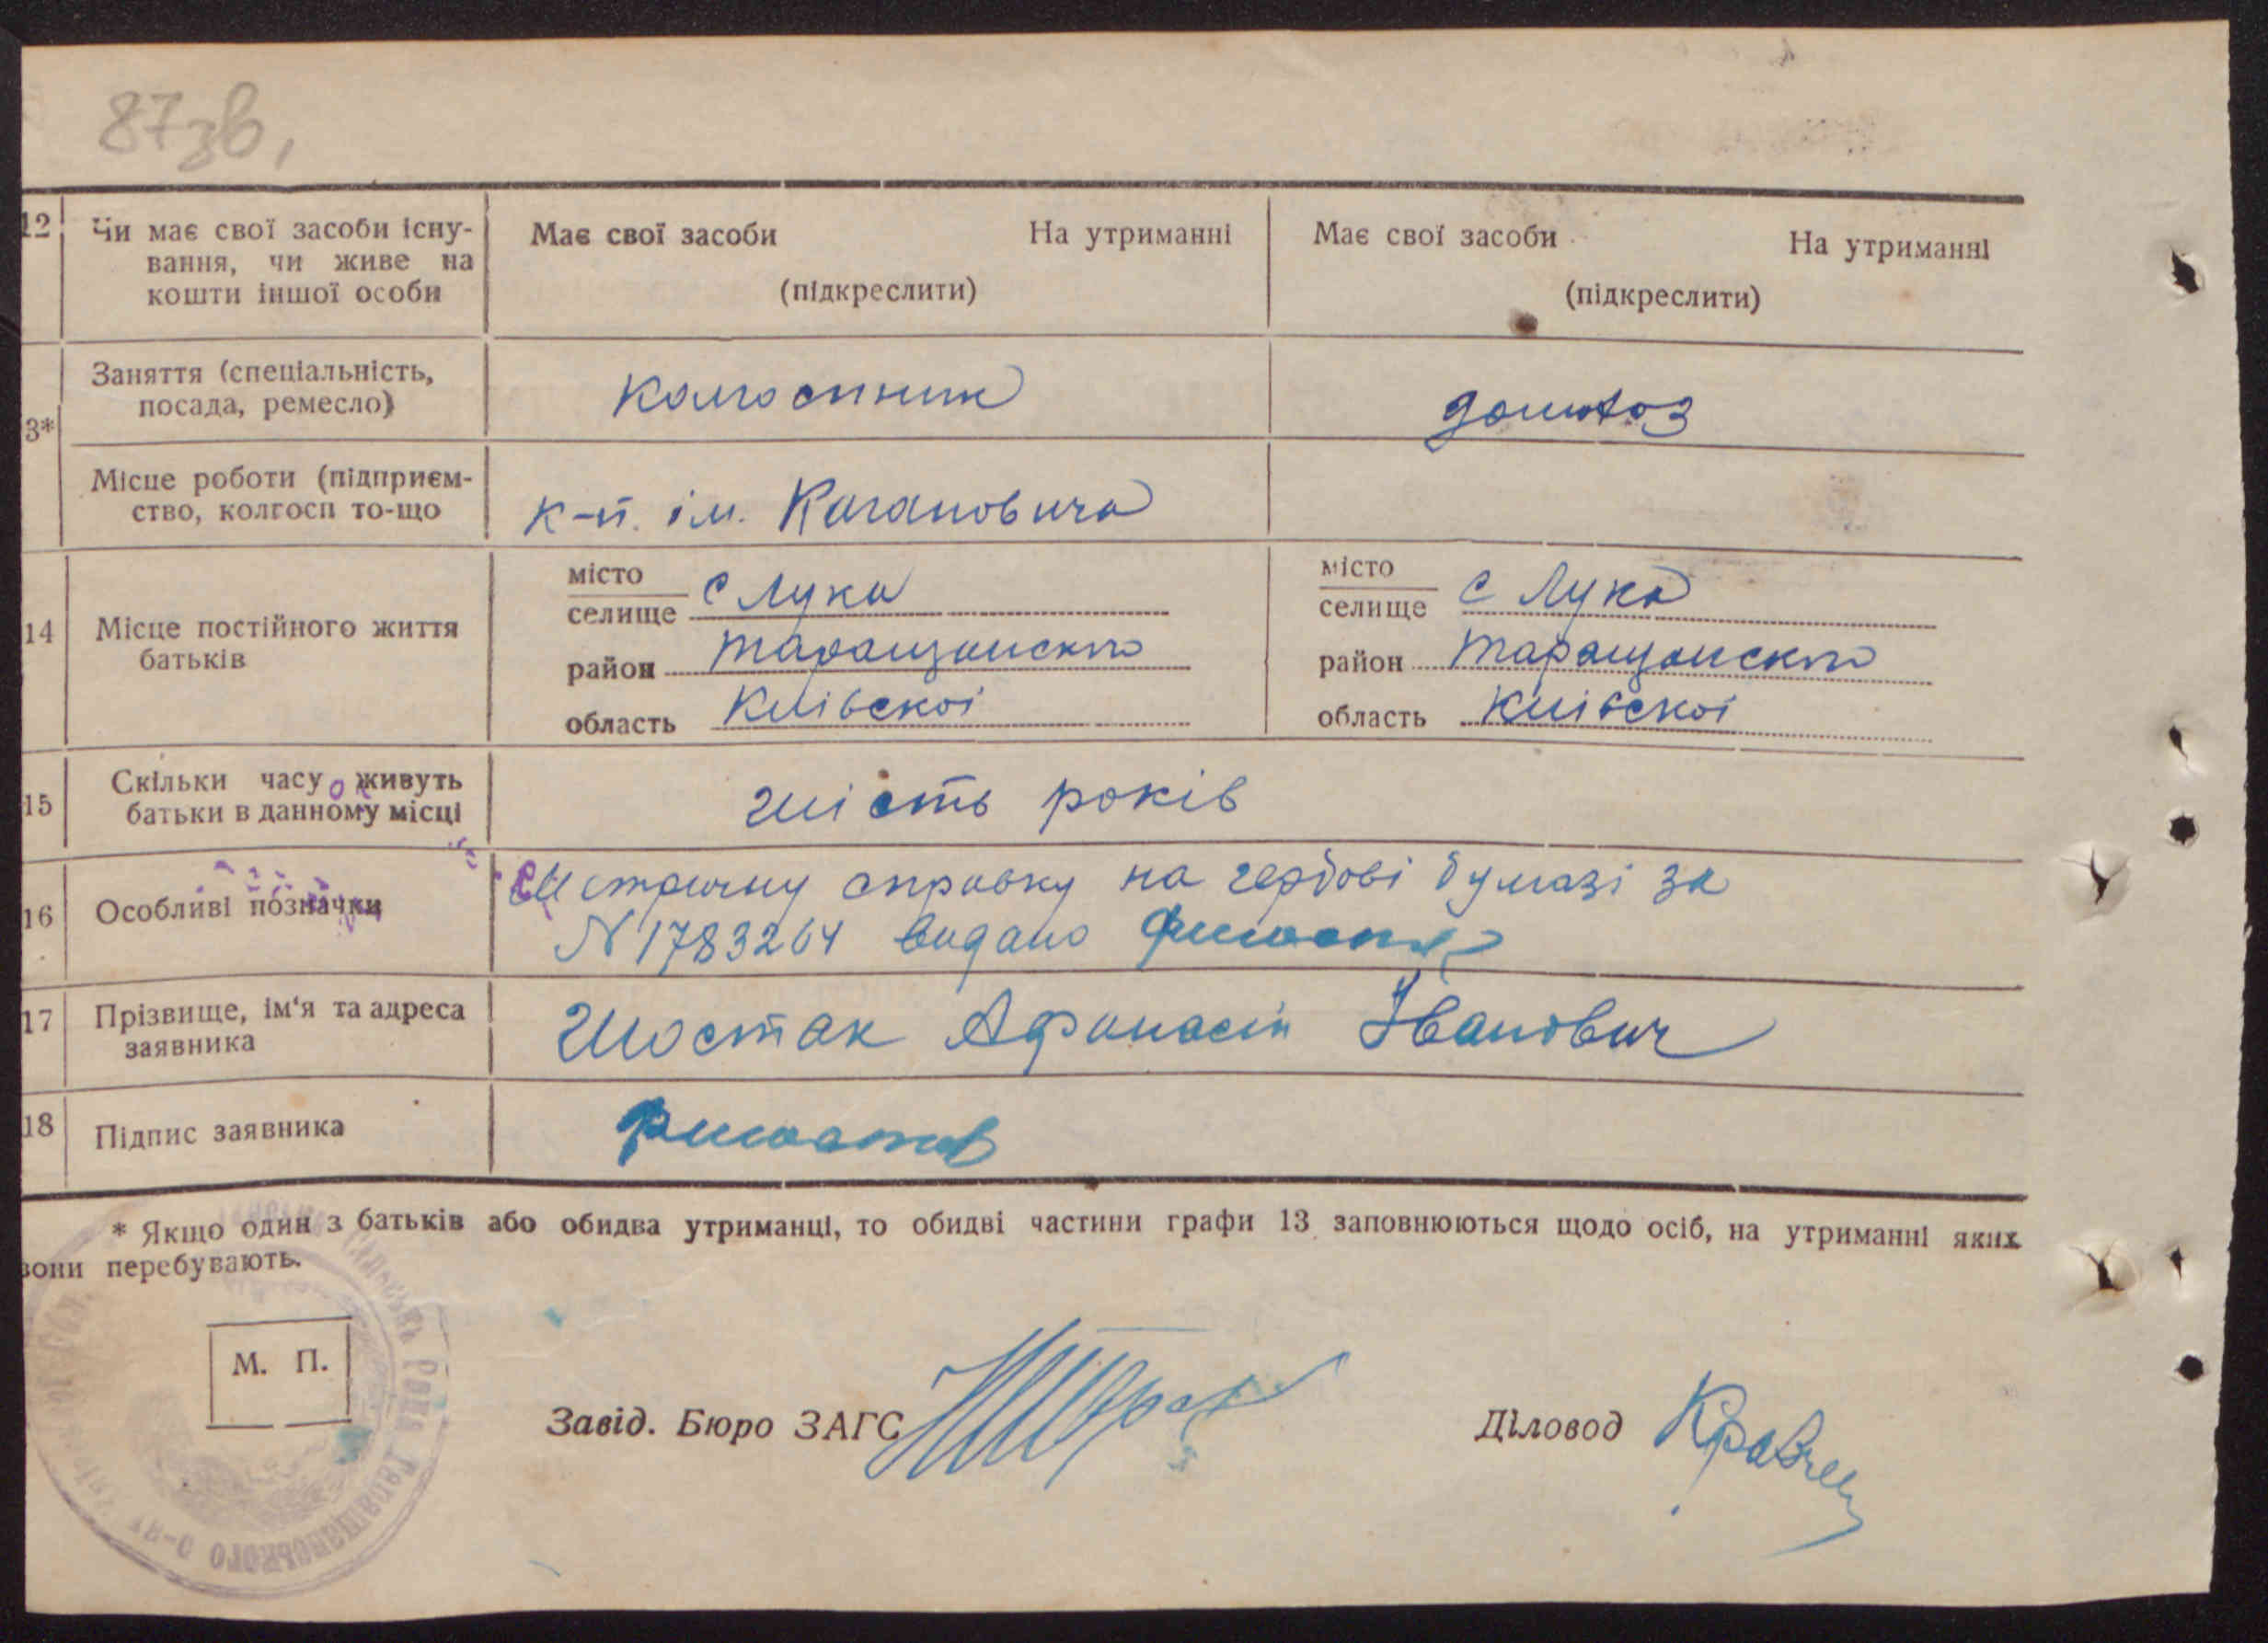 87зв,
12 Чи має свої засоби існу-
вання, чи живе на
кошти іншої особи
Має свої засоби На утриманні
(підкреслити)
Має свої засоби На утриманні
(підкреслити)
3* Заняття (спеціальність,
посада, ремесло)
колгоспник
домогоз
Місце роботи (підприєм-
ство, колгосп то-що
к-п. ім. Кагановича
14 Місце постійного життя
батьків
місто
селище с Лука
район Таращанского
область Київскої
місто
селище с Лука
район Таращанского
область Київскої
15 Скільки часу живуть
батьки в данному місці
шість років
16 Особливі позначки
справку на гербові бумазі за
N 1783264 видано
17 Прізвище, ім'я та адреса
заявника
Шостак Афанасій Іванович
18 Підпис заявника
* Якщо один з батьків або обидва утриманці, то обидві частини графи 13 заповнюються щодо осіб, на утриманні яких
вони перебувають.
М. П.
Завід. Бюро ЗАГС
Діловод
Таращанського